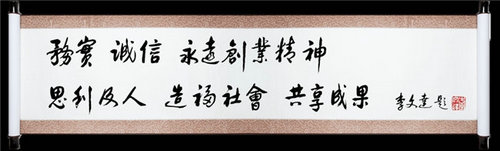 務實 誠信 永遠創業精神
思利及人 造福社會 共享成果 李文達 題